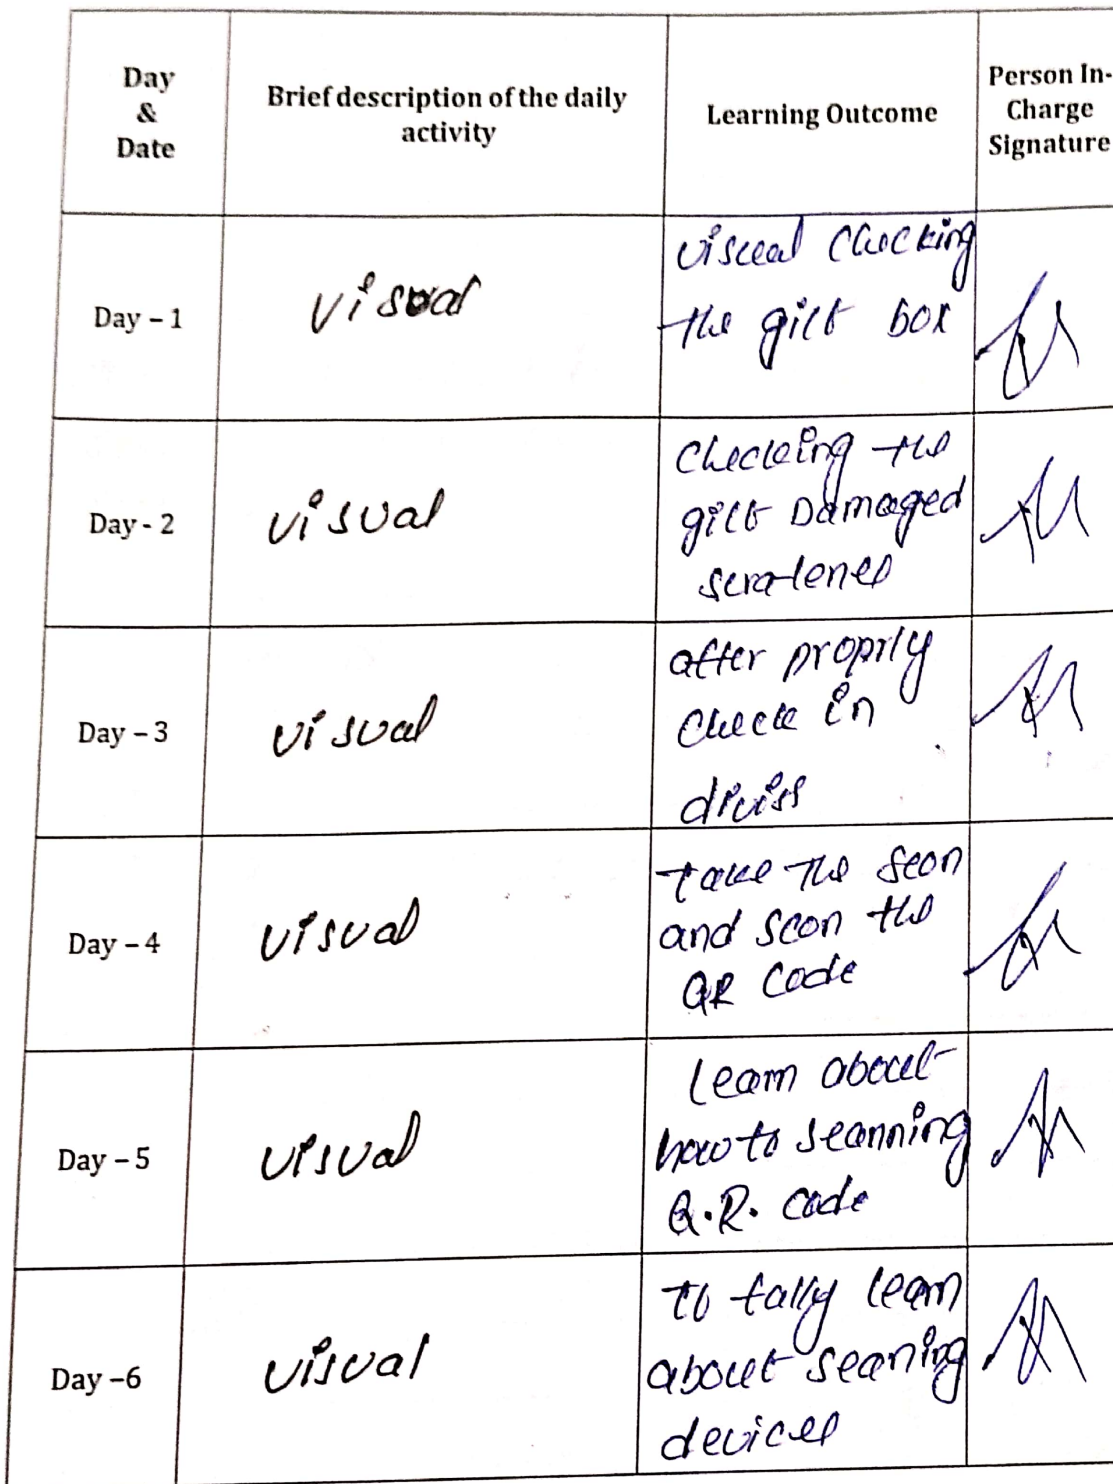 Day
&
Date
Brief description of the daily
activity
Learning Outcome
Person In-
Charge
Signature
Day – 1
visual
visual checking
the gift box
Day - 2
visual
checking the
gift Damaged
Day – 3
visual
after proprly
check in
Day – 4
visual
take the scon
and scon the
QR code
Day – 5
visual
learn about
how to scanning
Q.R. code
Day –6
visual
to tally learn
about scaning
devices